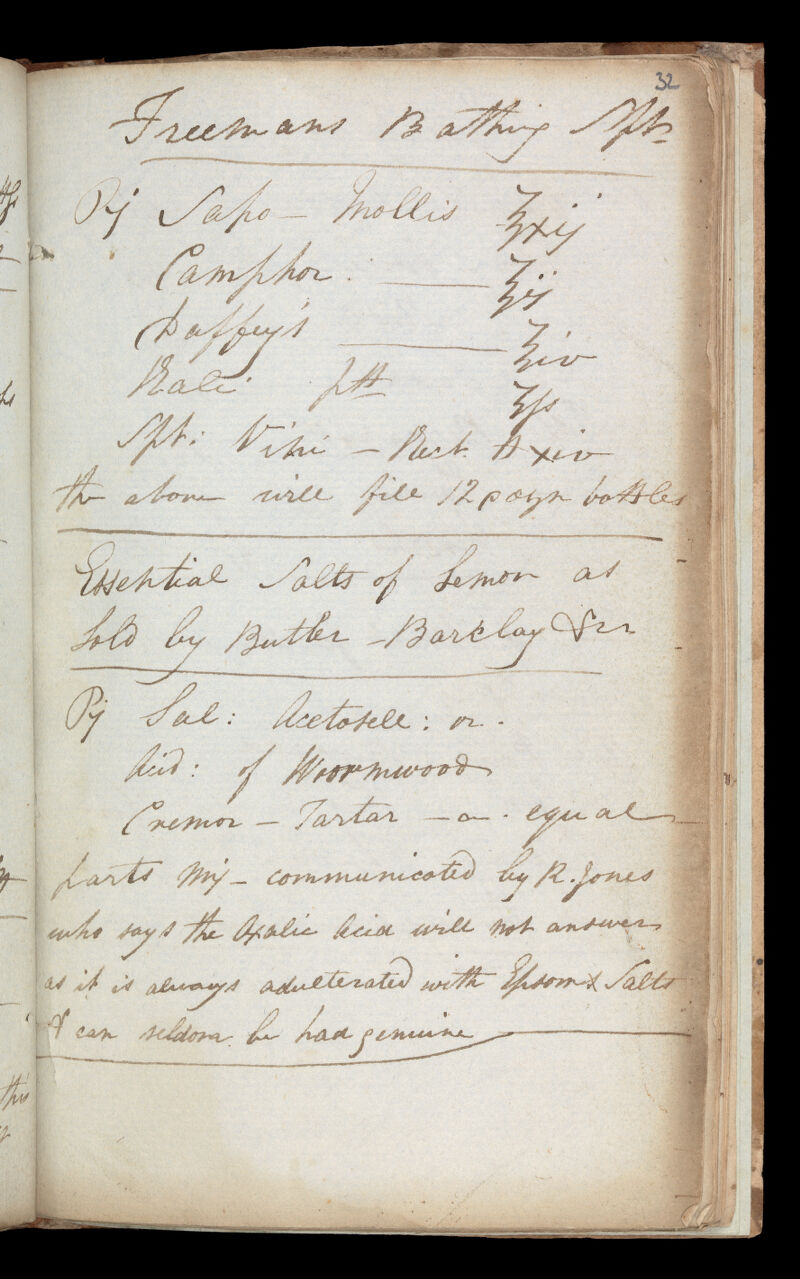 32
Freemans Bathing Spts
Rx Sapo - Mollis ℥xij
Camphor ℥ij
Daffey's ℥iv
Kali ppt ℥ss
Spt: Vini - Rect. ℔xiv
the above will fill 12 bottles
Essential Salts of Lemon as
Sold by Butler - Barclay &cc
Rx Sal: Acetosell: or.
Acid: of Woormwood
Cremor - Tartar - a - equal
parts Mix - communicated by R. Jones
who says the Oxalic Acid will not answer
as it is always adulterated with Epsom Salts
& can seldom be had genuine